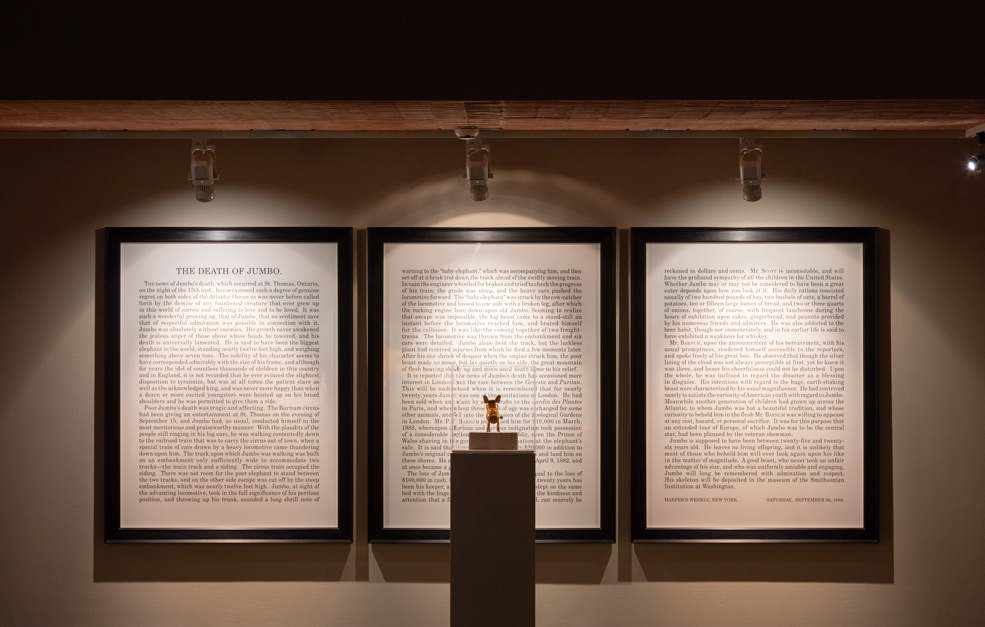 THE DEATH OF JUMBO.
THE news of Jumbo's death, which occurred at St. Thomas, Ontario,
on the night of the 15th inst., has occasioned such a degree of genuine
regret on both sides of the Atlantic Ocean as was never before called
forth by the demise of any fourfooted creature that ever grew up
in this world of sorrow and suffering to love and to be loved. It was
such a wonderful growing up, that of Jumbo, that no sentiment save
that of respectful admiration was possible in connection with it.
Jumbo was absolutely without enemies. His growth never awakened
the jealous anger of those above whose heads he towered, and his
death is universally lamented. He is said to have been the biggest
elephant in the world, standing nearly twelve feet high; and weighing
something above seven tons. The nobility of his character seems to
have corresponded admirably with the size of his frame, and although
for years the idol of countless thousands of children in this country
and in England, it is not recorded that he ever evinced the slightest
disposition to tyrannize, but was at all times the patient slave as
well as the acknowledged king, and was never more happy than when
a dozen or more excited youngsters were hoisted up on his broad
shoulders and he was permitted to give them a ride.
Poor Jumbo's death was tragic and affecting. The BARNUM circus
had been giving an entertainment at St. Thomas on the evening of
September 15, and Jumbo had, as usual, conducted himself in the
most meritorious and praiseworthy manner. With the plaudits of the
people still ringing in his big ears, he was walking contentedly down
to the railroad train that was to carry the circus out of town, when a
special train of cars drawn by a heavy locomotive came thundering
down upon him. The truck upon which Jumbo was walking was built
on an embankment only sufficiently wide to accommodate two
tracks—the main track and a siding. The circus train occupied the
siding. There was not room for the poor elephant to stand between
the two tracks, and on the other side escape was cut off by the steep
embankment, which was nearly twelve feet high. Jumbo, at sight of
the advancing locomotive, took in the full significance of his perilous
position, and throwing up his trunk, sounded a long shrill note of
warning to the "baby elephant," which was accompanying him, and then
set off at a brisk trot down the track ahead of the swiftly moving train.
In vain the engineer whistled for brakes and tried to check the progress
of his train; the grade was steep, and the heavy cars pushed the
locomotive forward. The "baby elephant" was struck by the cow-catcher
of the locomotive and tossed to one side with a broken leg, after which
the rocking engine bore down upon old Jumbo. Seeming to realize
that escape was impossible, the big beast came to a stand-still an
instant before the locomotive reached him, and braced himself
for the collision. It was like the coming together of two freight-
trains. The locomotive was thrown from the embankment and six
cars were derailed. Jumbo alone held the track, but the luckless
giant had received injuries from which he died a few moments later.
After his one shriek of despair when the engine struck him, the poor
beast made no moan, but lay quietly on his side, the great mountain
of flesh heaving slowly up and down until death came to his relief.
It is reported that the news of Jumbo's death has occasioned more
interest in London than the race between the Genesta and Puritan.
This will be understood when it is remembered that for nearly
twenty years Jumbo was one institutions of London. He had
been sold when an by Arabs to the Jardin des Plantes
in Paris, and when about three of age was exchanged for some
other animals, and into the of the Zoological Gardens
in London. Mr. P. T. BARNUM purchased him for \$10,000 in March,
1882, whereupon a furious indignation took possession
of a considerable people, even the Prince of
Wales sharing in at the elephant's
sale. It is said \$30,000 in addition to
Jumbo's original and land him on
these shores. He April 9, 1882, and
at once became a
The loss of Jumbo equal to the loss of
\$100,000 in cash, twenty years has
been his keeper, slept on the same
bed with the huge the kindness and
attention that a can scarcely be
reckoned in dollars and cents. Mr. SCOTT is inconsolable, and will
have the profound sympathy of all the children in the United States.
Whether Jumbo may or may not be considered to have been a great
eater depends upon how you look at it. His daily rations consisted
usually of two hundred pounds of hay, two bushels of oats, a barrel of
potatoes, ten or fifteen large loaves of bread, and two or three quarts
of onions, together, of course, with frequent luncheons during the
hours of exhibition upon cakes, gingerbread, and peanuts provided
by his numerous friends and admirers. He was also addicted to the
beer habit, though not immoderately, and in his earlier life is said to
have exhibited a weakness for whiskey.
Mr. BARNUM, upon the announcement of his bereavement, with his
usual promptness, rendered himself accessible to the reporters,
and spoke freely of his great loss. He observed that though the silver
lining of the cloud was not always perceptible at first, yet he knew it
was there, and hence his cheerfulness could not be disturbed. Upon
the whole, he was inclined to regard the disaster as a blessing
in disguise. His intentions with regard to the huge, earth-shaking
beast were characterized by his usual magnificence. He had contrived
nearly to satiate the curiosity of American youth with regard to Jumbo.
Meanwhile another generation of children had grown up across the
Atlantic, to whom Jumbo was but a beautiful tradition, and whose
curiosity to behold him in the flesh Mr. BARNUM was willing to appease
at any cost, hazard, or personal sacrifice. It was for this purpose that
an extended tour of Europe, of which Jumbo was to be the central
star, had been planned by the veteran showman.
Jumbo is supposed to have been between twenty-five and twenty-
six years old. He leaves no living offspring, and it is unlikely that
most of those who beheld him will ever look again upon his like
in the matter of magnitude. A good beast, who never took an unfair
advantage of his size, and who was uniformly amiable and engaging,
Jumbo will long be remembered with admiration and respect.
His skeleton will be deposited in the museum of the Smithsonian
Institution at Washington.
HARPER'S WEEKLY, NEW YORK SATURDAY, SEPTEMBER 26, 1885.